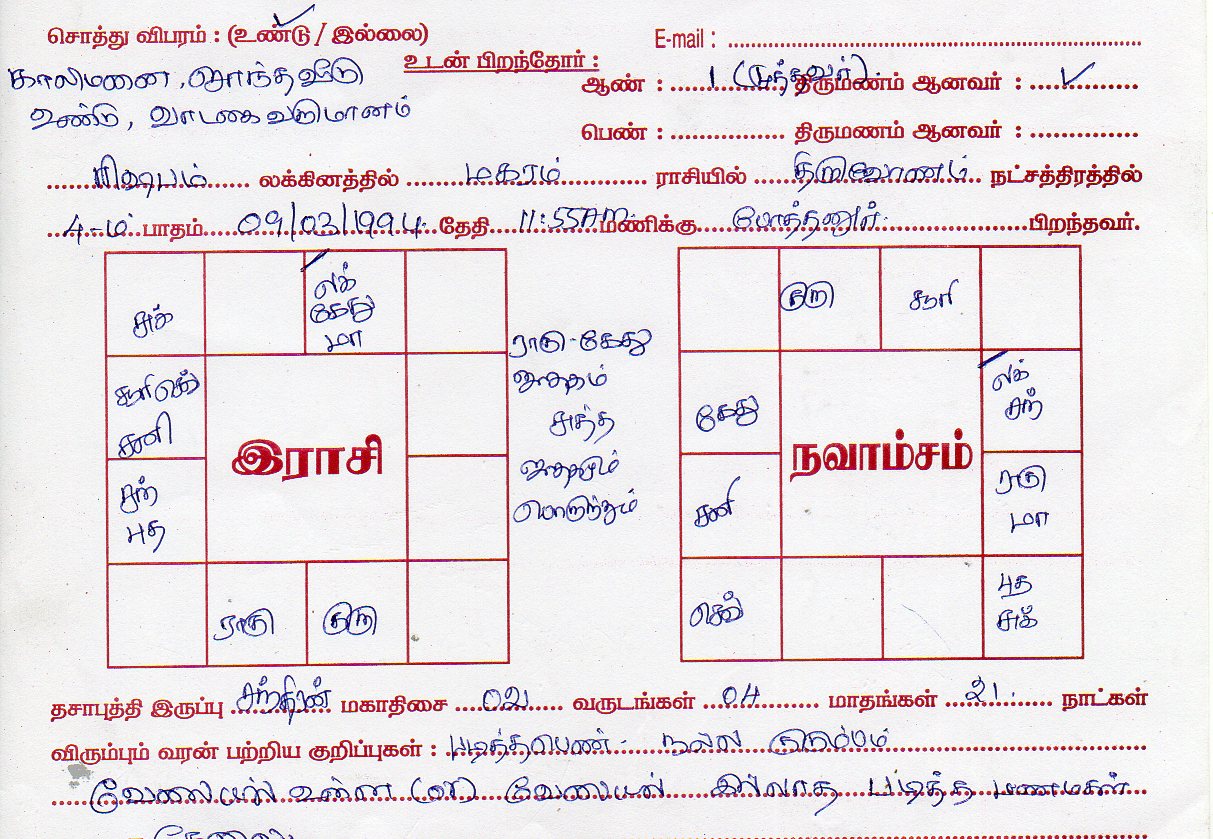 சொத்து விபரம் : (உண்டு / இல்லை)
E-mail :
காலிமனை, சொந்த வீடு
உண்டு, வாடகை வருமானம்
உடன் பிறந்தோர் :
ஆண் : 1 (மூத்தவர்) திருமணம் ஆனவர் : ✓
பெண் : திருமணம் ஆனவர் :
ரிஷபம் லக்கினத்தில் மகரம் ராசியில் திருவோணம் நட்சத்திரத்தில்
4-ம் பாதம் 09/03/1994 தேதி 11:55AM மணிக்கு போத்தனூர் பிறந்தவர்.
சுக்
லக்
கேது
மா
சூரி செவ்
சனி
சந்
புத
ராகு
குரு
இராசி
ராகு-கேது
ஜாதகம்
சுத்த
ஜாதகமும்
பொருந்தும்
குரு
சூரி
கேது
லக்
சந்
சனி
ராகு
மா
செவ்
புத
சுக்
நவாம்சம்
தசாபுத்தி இருப்பு சந்திரன் மகாதிசை 02 வருடங்கள் 04 மாதங்கள் 21 நாட்கள்
விரும்பும் வரன் பற்றிய குறிப்புகள் : படித்தபெண் - நல்ல குடும்பம்
வேலையில் உள்ள (or) வேலையில் இல்லாத படித்த மணமகள்
தேவை